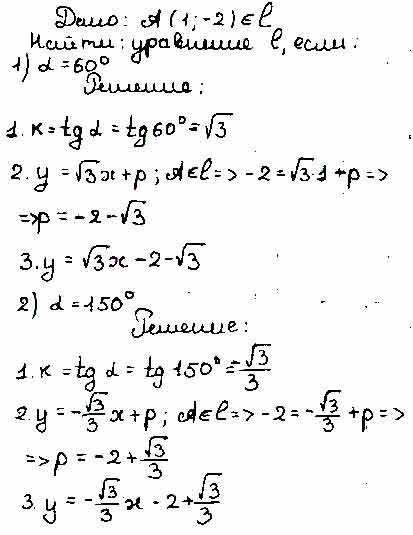 Дано: A(1;-2)∈l
Найти: уравнение l, если:
1) α=60°
Решение:
1. к=tg α=tg60°=√3
2. y=√3x+p; A∈l=>-2=√3·1+p=>
=>p=-2-√3
3. y=√3x-2-√3
2) α=150°
Решение:
1. к=tg α=tg 150°=-√3/3
2. y=-√3/3 x+p; A∈l=>-2=-√3/3+p=>
=>p=-2+√3/3
3. y=-√3/3 x-2+√3/3